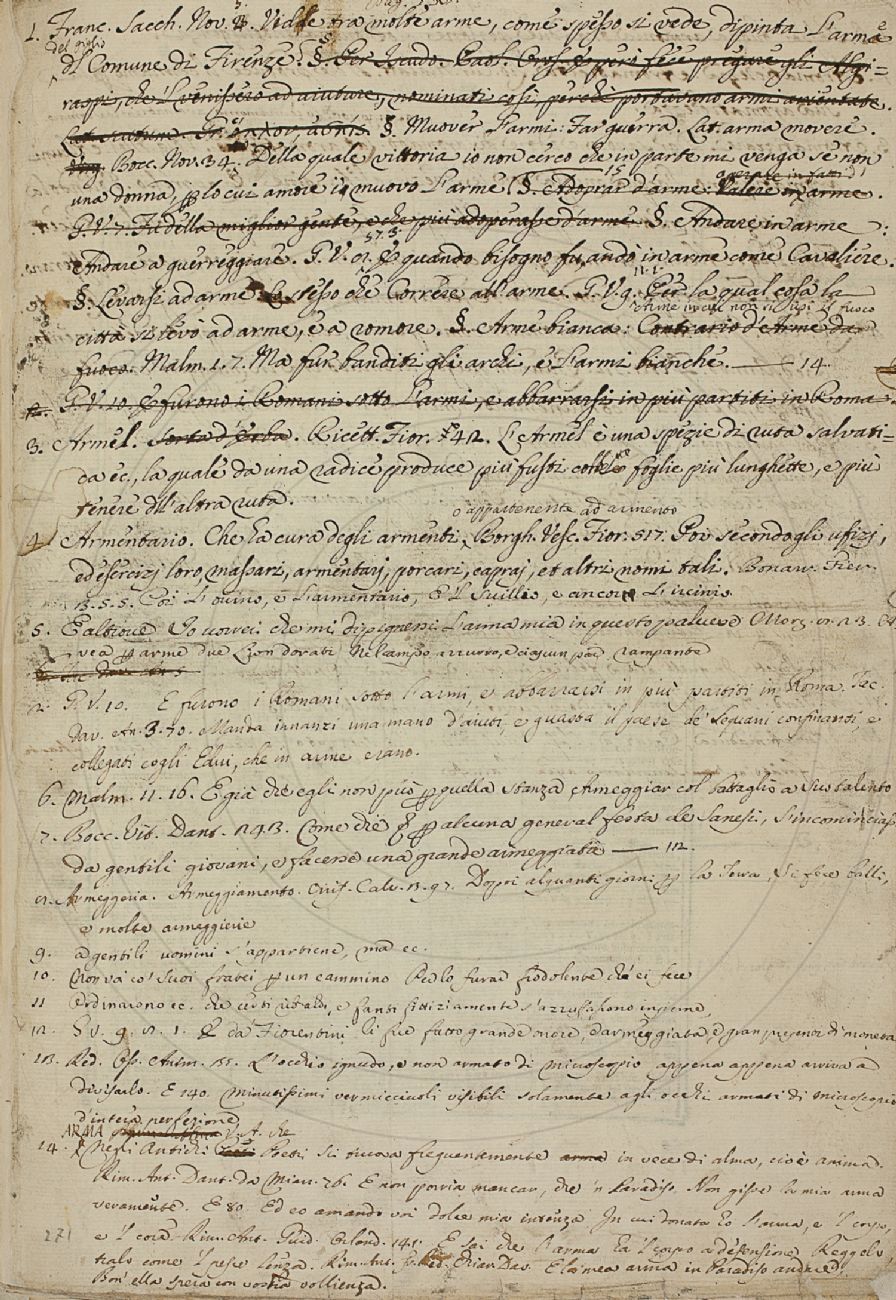 1. Franc. Sacch. Nov. Vidde tra molte arme, come spesso si vede, dipinta l'arma
del giglio
del Comune di Firenze. §. Per Iscudo. Paol. Oros. E però fece pregare gli
che venissero ad aiutare, nominati così, perchè portavano armi avventate.
§. Muover l'armi. Far guerra. Lat. arma movere.
Bocc. Nov. 34. Della quale vittoria io non cerco che in parte mi venga se non
una donna, per lo cui amore io muovo l'arme. §. Adoprar d'arme: Valere in arme
G. V. 7. Fu della miglior gente, e che più adoperasse d'arme. §. Andare in arme:
57. 5.
Andare a guerreggiare. G. V. E quando bisogno fu, andò in arme come Cavaliere.
§. Levarsi ad arme. Lo stesso che Correre all'arme. G. V. 9. Per la qual cosa la
città si levò ad arme, e a romore. §. Arme bianca: Contrario d'Arme da
fuoco. Malm. 1. 7. Ma fur banditi gli archi, e l'armi bianche. — 14.
G. V. 10. E furono i Romani sotto l'armi, e abbarrarsi in più partiti in Roma
3. Armel. Sorta d'erba. Ricett. Fior. 42. L'Armel è una spezie di ruta salvati-
ca ec., la quale da una radice produce più fusti colle foglie più lunghette, e più
tenere dell'altra ruta.
o appartenente ad armento
4. Armentario. Che ha cura degli armenti. Borgh. Vesc. Fior. 517. Poi secondo gli ufizj,
ed esercizj loro, massari, armentarj, porcari, capraj, et altri nomi tali. Bonarr. Fier.
3. 5. 5. Coi l'ovino, e l'armentario, E 'l Suillio, e ancor l'ircinio.
5. E altrove Io vorrei che mi dipignessi l'arma mia in questo palvese Morg.
vea per arme due Lion dorati Nel campo azzurro, e ciascun par rampante
2. G. V. 10. E furono i Romani sotto l'armi, e abbarrarsi in più partiti in Roma. Tac.
Dav. An. 3. 70. Manda innanzi una mano d'aiuti, e guasta il paese de' Sequani confinanti, e
collegati cogli Edui, che in arme erano.
6. Malm. 11. 16. E già che egli non può per quella stanza Armeggiar col battaglio a suo talento
7. Bocc. Vit. Dant. Come che per alcuna general festa de' Sanesi, s'incominciasse
da gentili giovani, e facesse una grande armeggiata — 12.
8. Armeggeria. Armeggiamento. Dopoi alquanti giorni per la Terra si fece balli,
e molte armeggierie
9. a gentili uomini s'appartiene, ma ec.
10. Non va co' suoi fratei per un cammino Per lo furar frodolente che ei fece
11 Ordinarono ec. che certi ribaldi, e fanti fittiziamente s'azzuffassono insieme,
12. G. V. 9. 8. 1. E da Fiorentini li fue fatto grande onore, d'armeggiata, e gran presenti di moneta
13. Red. Oss. Anim. L'occhio ignudo, e non armato di microscopio, appena appena arriva a
divisarlo. E 140. Minutissimi vermicciuoli visibili solamente agli occhi armati di microscopio
d'intera perfezione
ARMA
14. Negli Antichi Poeti si trova frequentemente arma in vece di alma, cioè anima.
Rim. Ant. Dant. da Maian. 76. E non porria mancar, che 'n Paradiso Non gisse la mia arma
veramente. E 80. Ed eo amando voi dolce mia intenza In cui donato ho l'arma, e 'l corpo,
e 'l core. Rim. Ant. Guid. Orland. E sai che l'arma ha 'l corpo a difensione
come 'l pesce lenza. Rim. Ant. E la mea arma in Paradiso andare,
Bon' ella speia con vostra vollienza.
271